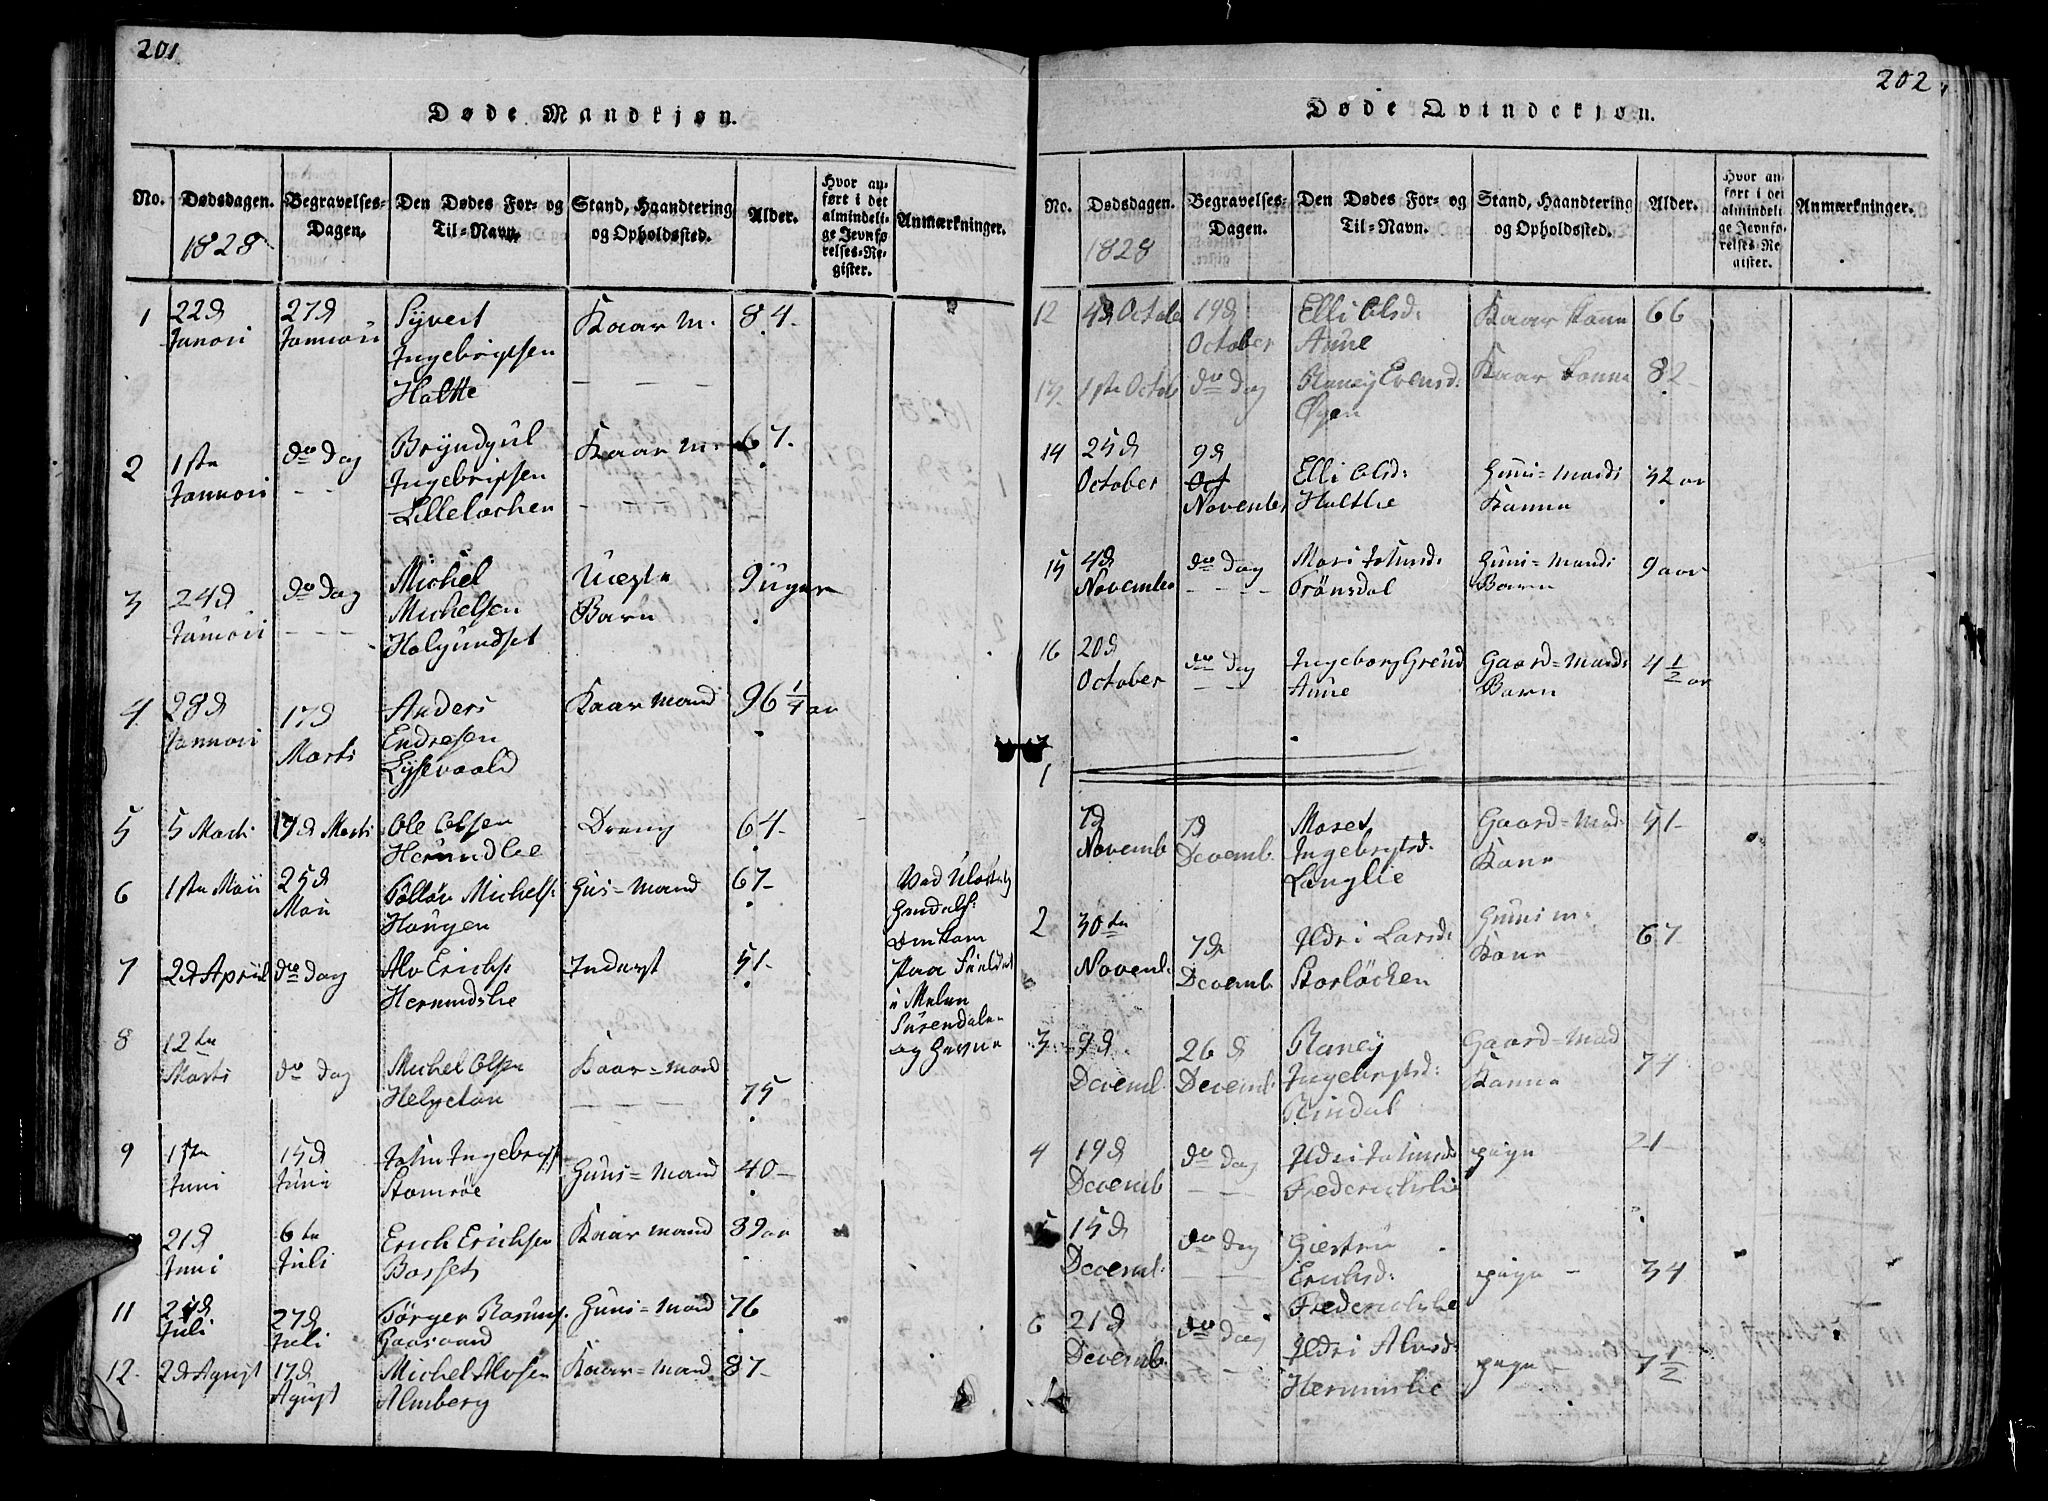 201
Døde Mandkjøn.
No.
Dødsdagen.
1828
Begravelses-
Dagen.
Den Dødes For- og
Til-Navn.
Stand, Haandtering
og Opholdssted.
Alder.
Hvor an-
ført i det
almindeli-
ge Jevnfø
relses-Re-
gister.
Anmærkninger.
1
22d
Janori
27d
Januari
Syvert
Ingebrigtsen
Holtte
Kaar m.
84.
2
1ste
Januari
do dag
Bryndgul
Ingebrigtsen
Lilleløchen
Kaar m.
67.
3
24d
Januari
do dag
Michel
Michelsen
Holgundset
Uægte
Barn
9 uger
4
28d
Januari
17d
Marti
Anders
Endresen
Lysevaald
Kaar mand
96 1/4 aar
5
5 Marti
17d Marti
Ole Olsen
Herundlie
Dreng
64-
6
1ste Maii
25d
Maii
Tølløv Michels:
Hougen
Huus=mand
67-
7
2d April
do dag
Alv Erichs:
Hermundslie
Inderst
51-
Paa
i
Surendalen
og Hevne
8
12te
Marti
do dag
Michel Olsen
Helgetøn
Kaar=mand
75
9
Juni
15d
Juni
John Ingebrigts
Stomrøe
Huus=mand
40-
21d
Juni
6te
Juli
Erich Erichsen
Bosset
Kaar mand
82 aar
11
Juli
27d
Juli
Tørger Rasmus.
Gaasvand
Huus=mand
76
12.
2d Agust
17d
Agust
Michel Alvsen
Almberg
Kaar=mand
87-
202
Døde Qvindekjøn.
No.
Dødsdagen.
1828
Begravelses-
Dagen.
Den Dødes For- og
Til-Navn.
Stand, Haandtering
og Opholdssted.
Alder.
Hvor an-
ført i det
almindeli-
ge Jevnfø-
relses-Re-
gister.
Anmærkninger.
12
4d October
19d
October
Elli Olsd:
Aune
Kaar kone
66
13.
1ste Octob
do dag
Raney Evensd:
Øyen
Kaar konne
82-
14
25d
October
9d
Oct
November
Elli Olsd:
Holthe
Huus=mands
Konne
32 aar
15
4d
November
do dag
Mari
Trønsdal
Huus=mands
Barn
9 aar
16
20d
October
do dag
Ingeborg
Aune
Gaard=mands
Barn
4 1/2 aar
1
7d
Novemb
7d
Devemb.
Maret
Ingebrigtsd:
Langlie
Gaard=mad.
Kone
51-
2
30te
Novemb.
7d
Devemb.
Ildri Larsd:
Storløcken
Huus m:
Kone
67
3
9d
Devemb.
26d
Devemb.
Raney
Ingebrigtsd:
Rindal
Gaard=mad
Konne
74
4
19d
Devemb
do dag
Ildri
Frederichslie
pige
21-
5
15d
Devemb:
do dag
Giertru
Erichsd:
Frederichslie
pige -
34
6
21d
Devemb.
do dag
Ildri Alvsd:
Hermunslie
pige -
7 1/2